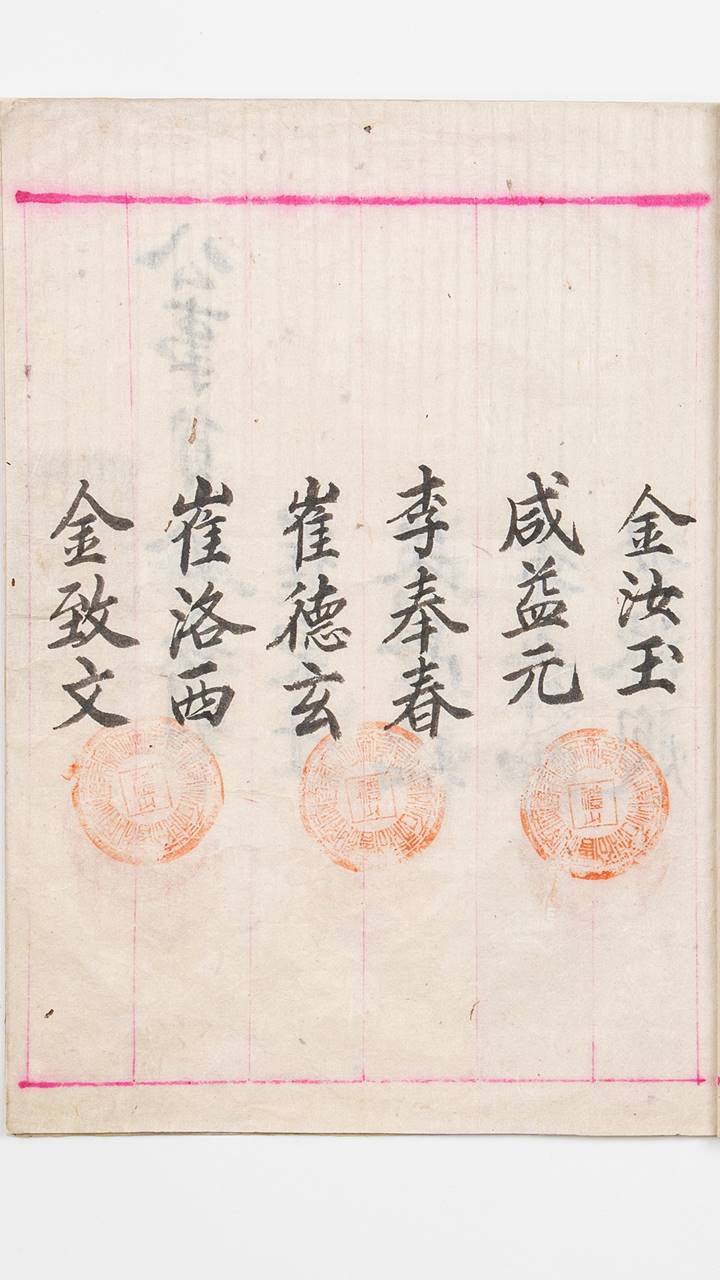 金汝玉
咸益元
李奉春
崔德玄
崔洛西
金致文